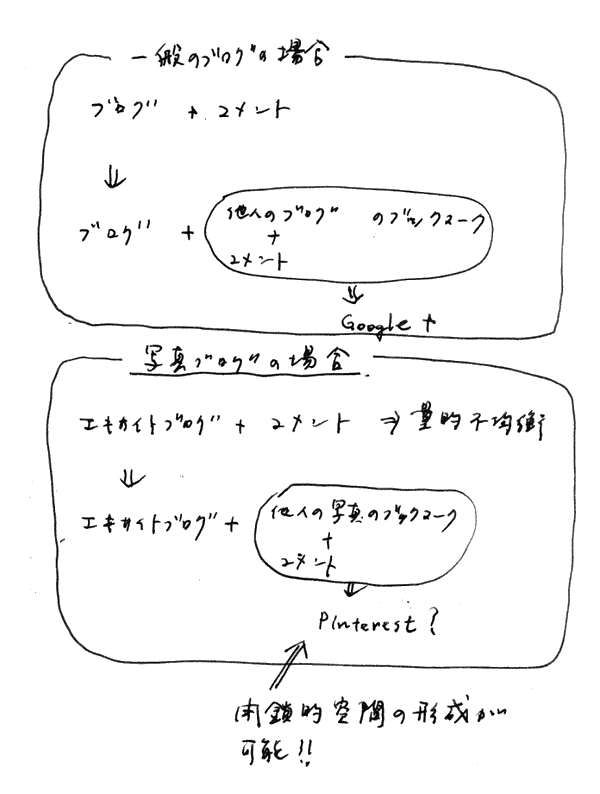 一般のブログの場合
ブログ + コメント
⇓
ブログ + 他人のブログ のブックマーク
+
コメント
⇓
Google +
写真ブログの場合
エキサイトブログ + コメント ⇒ 量的不均衡
⇓
エキサイトブログ + 他人の写真のブックマーク
+
コメント
⇓
PInterest?
閉鎖的空間の形成が
可能!!